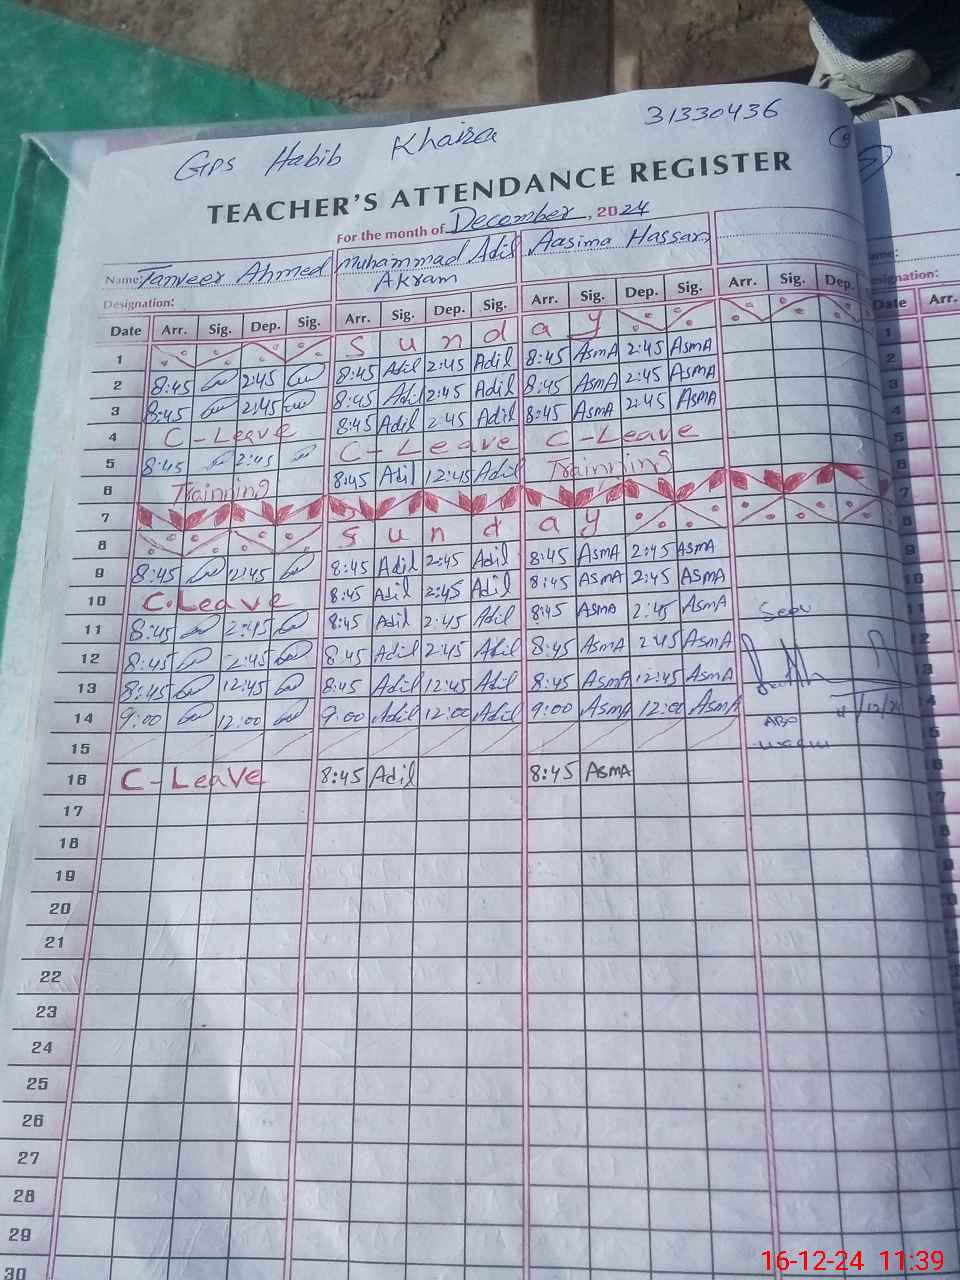 GPS Habib Khaira 31330436
TEACHER'S ATTENDANCE REGISTER
For the month of December, 2024
Name: Tanveer Ahmed Muhammad Adil Akram Aasima Hassan
Designation:
Date Arr. Sig. Dep. Sig. Arr. Sig. Dep. Sig. Arr. Sig. Dep. Sig. Arr. Sig. Dep.
1 Sunday
2 8:45 2:45 8:45 Adil 2:45 Adil 8:45 AsmA 2:45 AsmA
3 8:45 2:45 8:45 Adil 2:45 Adil 8:45 AsmA 2:45 AsmA
4 C-Leave 8:45 Adil 2:45 Adil 8:45 AsmA 2:45 AsmA
5 8:45 2:45 C-Leave C-Leave
6 Trainning 8:45 Adil 12:45 Adil Trainning
7
8 Sunday
9 8:45 2:45 8:45 Adil 2:45 Adil 8:45 AsmA 2:45 AsmA
10 C.Leave 8:45 Adil 2:45 Adil 8:45 AsmA 2:45 AsmA
11 8:45 2:45 8:45 Adil 2:45 Adil 8:45 AsmA 2:45 AsmA
12 8:45 2:45 8:45 Adil 2:45 Adil 8:45 AsmA 2:45 AsmA
13 8:45 12:45 8:45 Adil 12:45 Adil 8:45 AsmA 12:45 AsmA
14 9:00 12:00 9:00 Adil 12:00 Adil 9:00 AsmA 12:00 AsmA
15
16 C-Leave 8:45 Adil 8:45 AsmA
17
18
19
20
21
22
23
24
25
26
27
28
29
30
Seen
Date Arr.
1
2
3
4
5
6
7
8
9
10
11
12
13
14
16-12-24 11:39